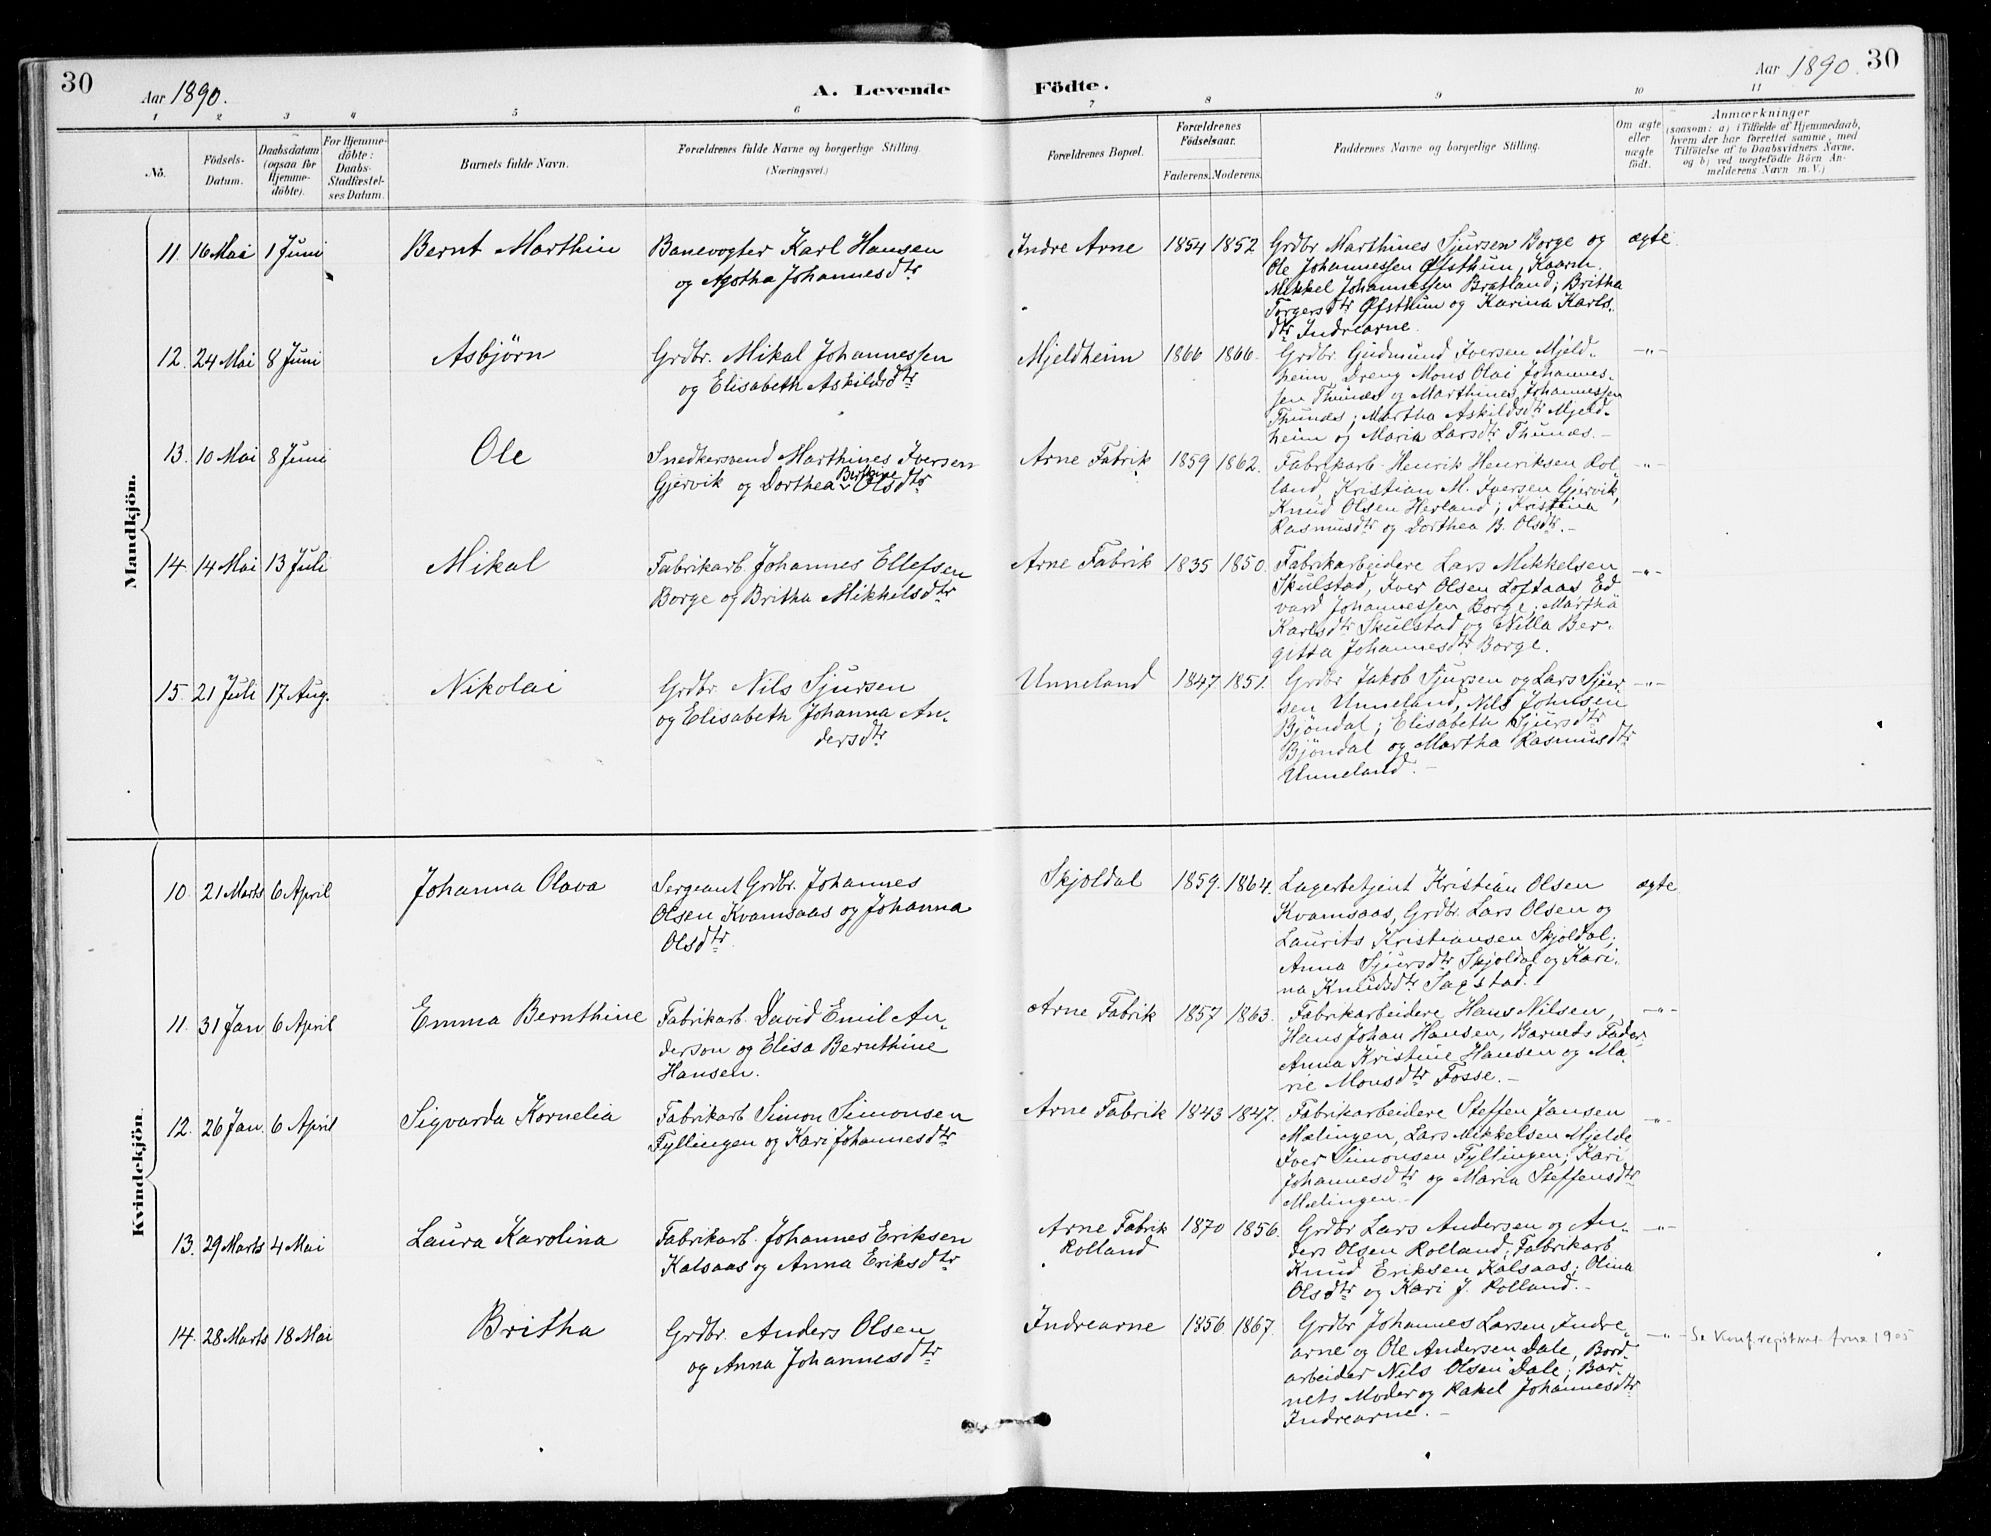 30
Aar 1890.
A. Levende
Födte.
Aar 1890.
30
1 2 3 4 5 6 7 8 9 10 11
No.
Födsels-
Datum.
Daabsdatum
(ogsaa for
Hjemme-
döbte).
For Hjemme-
döbte:
Daabs-
Stadfæstel-
ses Datum.
Barnets fulde Navn.
Forældrenes fulde Navne og borgerlige Stilling.
(Næringsvei.)
Forældrenes Bopæl.
Forældrenes
Födselsaar.
Faderens. Moderens.
Faddernes Navne og borgerlige Stilling.
Om ægte
eller
uægte
födt.
Anmærkninger
(saasom: a) i Tilfælde af Hjemmedaab,
hvem der har forrettet samme, med
Tilföielse af to Daabsvidners Navne,
og b) ved uægtefödte Börn An-
melderens Navn m. V.)
Mandkjön.
11. 16 Mai 1 Juni
Bernt Marthin
Banevogter Karl Hansen
og Agotha Johannesdtr
Indre Arne
1854 1852
Grdbr Marthines Sjursen Borge og
Ole Johannessen Øfsthun, Kaarm.
Mikkel Johannessen Bratland; Britha
Torgersdtr Øfsthun og Karina Karls-
dtr Indrearne.
ægte
12. 24 Mai 8 Juni
Asbjørn
Grdbr. Mikal Johannessen
og Elisabeth Askildsdtr
Mjeldheim
1866 1866.
Grdbr. Gudmund Iversen Mjeld-
heim, Dreng Mons Olai Johannes-
sen Thunæs og Marthines Johannessen
Thunæs; Martha Askildsdtr Mjeld-
heim og Maria Larsdtr Thunæs.-
-"-
13. 10 Mai 8 Juni
Ole
Snedkersvend Marthines Iversen
Gjervik og Dorthea Birthine Olsdtr
Arne Fabrik
1859 1862.
Fabrikarb. Henrik Henriksen Rol-
land, Kristian M. Iversen Gjervik,
Knud Olsen Herland; Kristina
Rasmusdtr og Dorthea B. Olsdtr.-
-"-
14. 14 Mai 13 Juli
Mikal
Fabrikarb. Johannes Ellefsen
Borge og Britha Mikkelsdtr
Arne Fabrik
1835 1850.
Fabrikarbeidere Lars Mikkelsen
Skulstad, Iver Olsen Loftaas Ed
vard Johannessen Borge; Martha
Karlsdtr Skulstad og Nilla Ber-
gitta Johannesdtr Borge.
-"-
15. 21 Juli 17 Aug.
Nikolai
Grdbr. Nils Sjursen
og Elisabeth Johanna An-
dersdtr
Unneland
1847. 1851.
Grdbr Jakob Sjursen og Lars Sjur-
sen Unneland, Nils Johnsen
Bjöndal; Elisabeth Sjursdtr
Bjöndal og Martha Rasmusdtr
Unneland.-
-"-
Kvindekjön.
10. 21 Marts 6 April
Johanna Olava
Sergeant Grdbr. Johannes
Olsen Kvamsaas og Johanna
Olsdtr.
Skjoldal
1859. 1864.
Lagerbetjent Kristian Olsen
Kvamsaas, Grdbr. Lars Olsen og
Laurits Kristiansen Skjoldal;
Anna Sjursdtr Skjoldal og Kari-
na Knudsdtr Sagstad.
ægte
11. 31 Jan. 6 April
Emma Bernthine
Fabrikarb. David Emil An-
derson og Elisa Bernthine
Hansen.
Arne Fabrik
1857 1863.
Fabrikarbeidere Hans Nilsen,
Hans Johan Hansen, Barnets Fader
Anna Kristine Hansen og Ma-
rie Monsdtr Fosse.-
-"-
12. 26 Jan. 6 April
Sigvarda Kornelia
Fabrikarb. Simon Simonsen
Fyllingen og Kari Johannesdtr
Arne Fabrik
1843 1847.
Fabrikarbeidere Steffen Jansen
Mælingen, Lars Mikkelsen Mjelde
Iver Simonsen Fyllingen; Kari
Johannesdtr og Maria Steffensdtr
Mælingen.-
-"-
13. 29 Marts 4 Mai
Laura Karolina
Fabrikarb. Johannes Eriksen
Kalsaas og Anna Eriksdtr
Arne Fabrik
Rolland
1870 1856.
Grdbr Lars Andersen og An-
ders Olsen Rolland, Fabrikarb
Knud Eriksen Kalsaas; Olina
Olsdtr og Kari J. Rolland.-
-"-
14. 28 Marts 18 Mai
Britha
Grdbr. Anders Olsen
og Anna Johannesdtr
Indrearne
1856 1867
Grdbr Johannes Larsen Indre-
arne og Ole Andersen Dale, Bord
arbeider Nils Olsen Dale; Bar-
nets Moder og Rakel Johannesdtr
Indrearne.-
-"-
Se Konf.registret Arna 1905